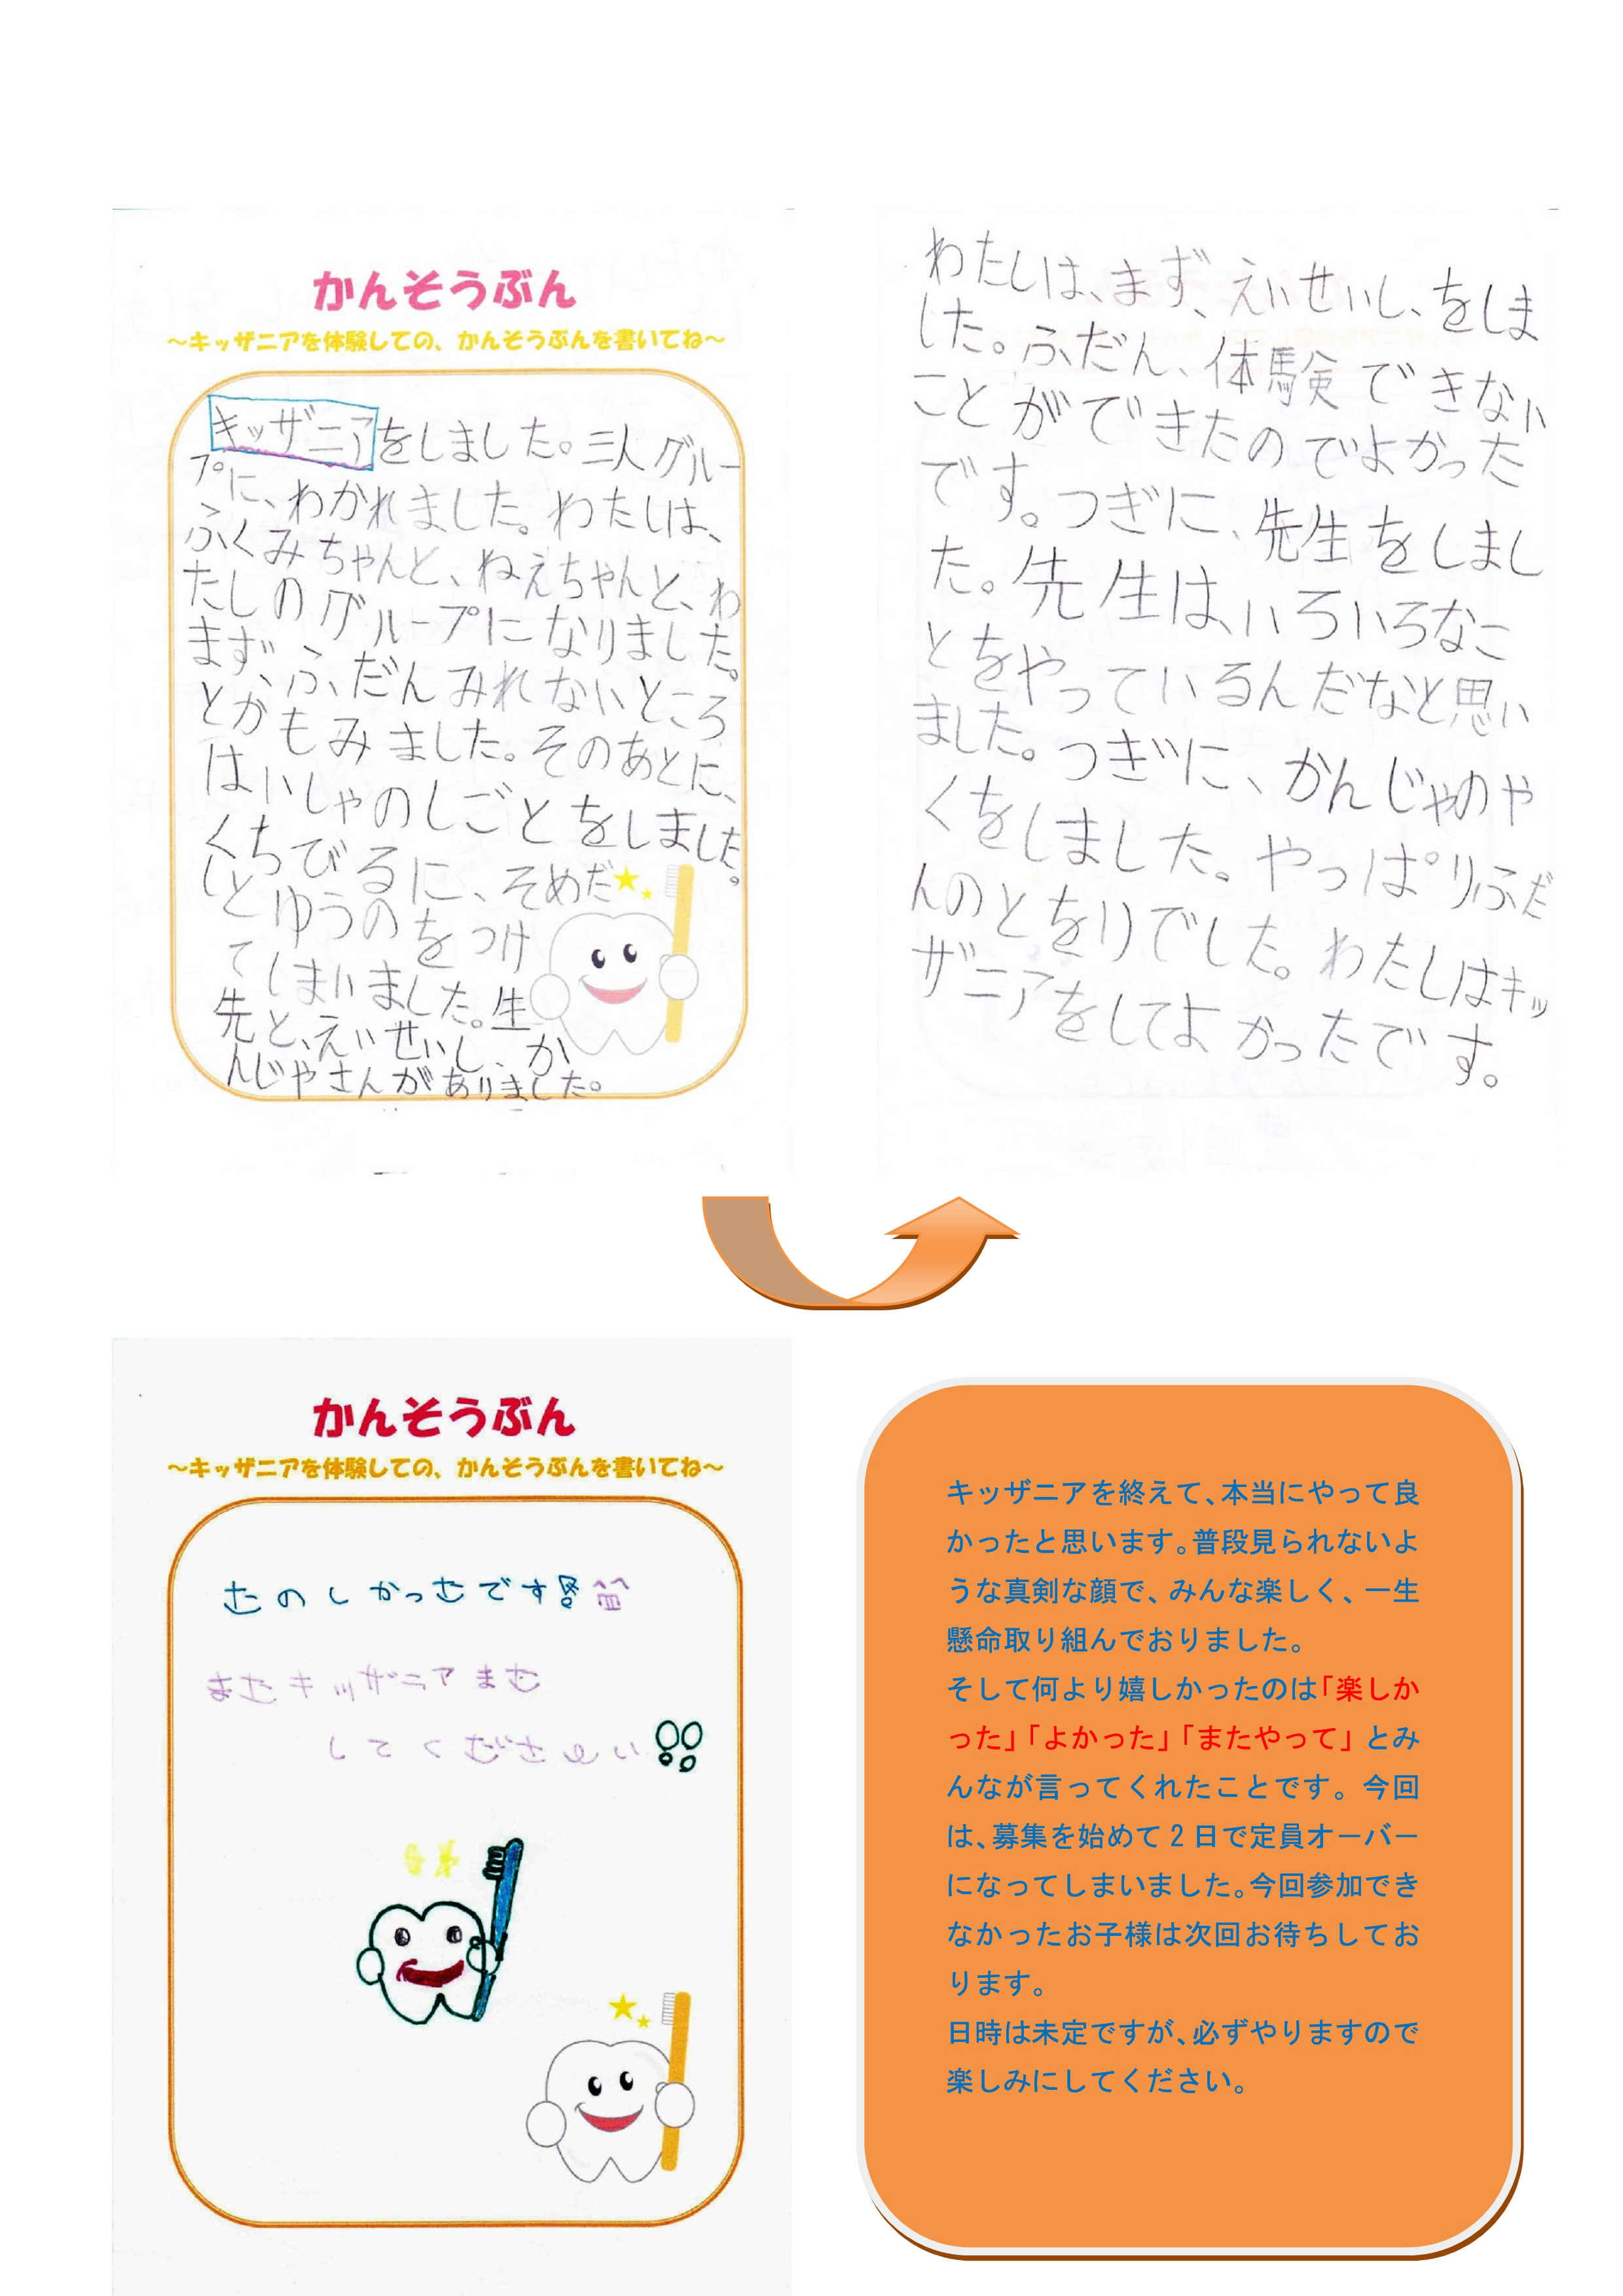 かんそうぶん
～キッザニアを体験しての、かんそうぶんを書いてね～
キッザニアをしました。三人グルー
プに、わかれました。わたしは、
ふくみちゃんと、ねえちゃんと、わ
たしのグループになりました。
まず、ふだんみれないところ
とかもみました。そのあとに、
はいしゃのしごとをしました。
くちびるに、そめだ
しとゆうのをつけ
てしまいました。生
先と、えいせいし、か
んじやさんがありました。
わたしは、まず、えいせいし、をしま
した。ふだん、体験できない
ことができたのでよかった
です。つぎに、先生をしまし
た。先生は、いろいろなこ
とをやっているんだなと思い
ました。つぎに、かんじゃのや
くをしました。やっぱりふだ
んのとをりでした。わたしはキッ
ザニアをしてよかったです。
かんそうぶん
～キッザニアを体験しての、かんそうぶんを書いてね～
たのしかったです
またキッザニアまた
してくださいい
キッザニアを終えて、本当にやって良
かったと思います。普段見られないよ
うな真剣な顔で、みんな楽しく、一生
懸命取り組んでおりました。
そして何より嬉しかったのは「楽しか
った」「よかった」「またやって」とみ
んなが言ってくれたことです。今回
は、募集を始めて2日で定員オーバー
になってしまいました。今回参加でき
なかったお子様は次回お待ちしてお
ります。
日時は未定ですが、必ずやりますので
楽しみにしてください。